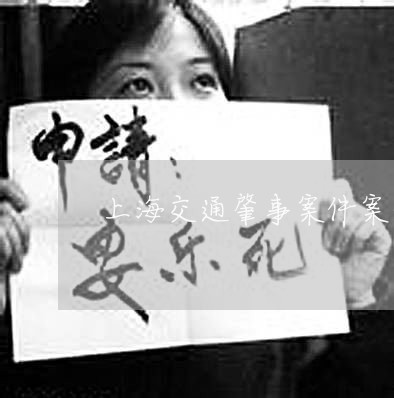 申請：
上海交通肇事案件案
安乐死